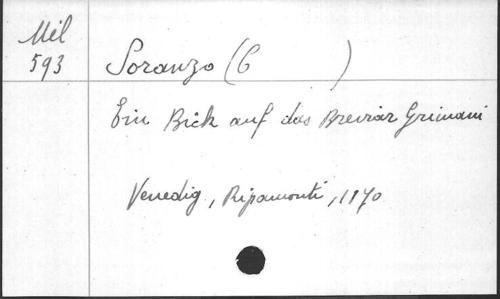 Mil
593
Soranzo (C )
Ein Bick auf das Breviar Grimani
Venedig, Ripamonti, 1870